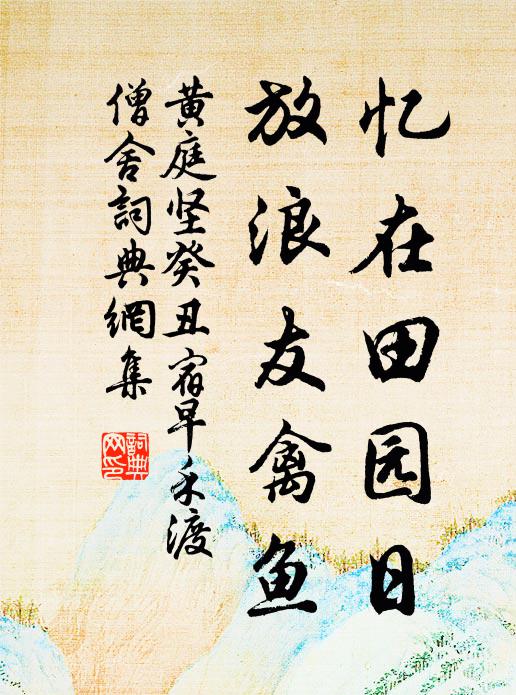 忆在田园日
放浪友禽鱼
黄庭坚癸丑宿早禾渡
僧舍詞典網集
詞典
网印